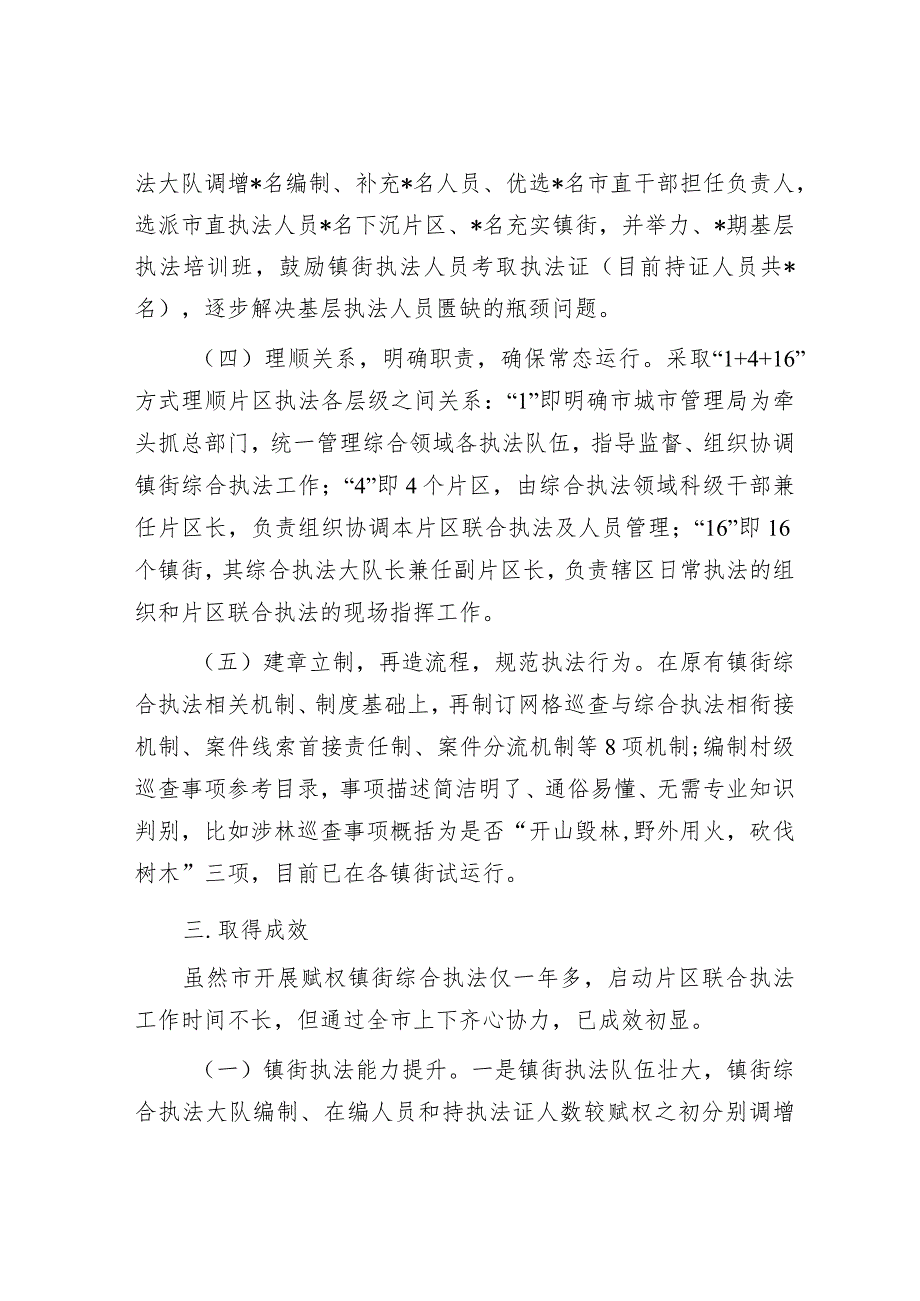 法大队调增*名编制、补充*名人员、优选*名市直干部担任负责人，
选派市直执法人员*名下沉片区、*名充实镇街，并举力、*期基层
执法培训班，鼓励镇街执法人员考取执法证（目前持证人员共*
名），逐步解决基层执法人员匮缺的瓶颈问题。
（四）理顺关系，明确职责，确保常态运行。采取“1+4+16”
方式理顺片区执法各层级之间关系：“1”即明确市城市管理局为牵
头抓总部门，统一管理综合领域各执法队伍，指导监督、组织协调
镇街综合执法工作；“4”即 4 个片区，由综合执法领域科级干部兼
任片区长，负责组织协调本片区联合执法及人员管理；“16”即 16
个镇街，其综合执法大队长兼任副片区长，负责辖区日常执法的组
织和片区联合执法的现场指挥工作。
（五）建章立制，再造流程，规范执法行为。在原有镇街综
合执法相关机制、制度基础上，再制订网格巡查与综合执法相衔接
机制、案件线索首接责任制、案件分流机制等 8 项机制;编制村级
巡查事项参考目录，事项描述简洁明了、通俗易懂、无需专业知识
判别，比如涉林巡查事项概括为是否“开山毁林,野外用火，砍伐
树木”三项，目前已在各镇街试运行。
三.取得成效
虽然市开展赋权镇街综合执法仅一年多，启动片区联合执法
工作时间不长，但通过全市上下齐心协力，已成效初显。
（一）镇街执法能力提升。一是镇街执法队伍壮大，镇街综
合执法大队编制、在编人员和持执法证人数较赋权之初分别调增